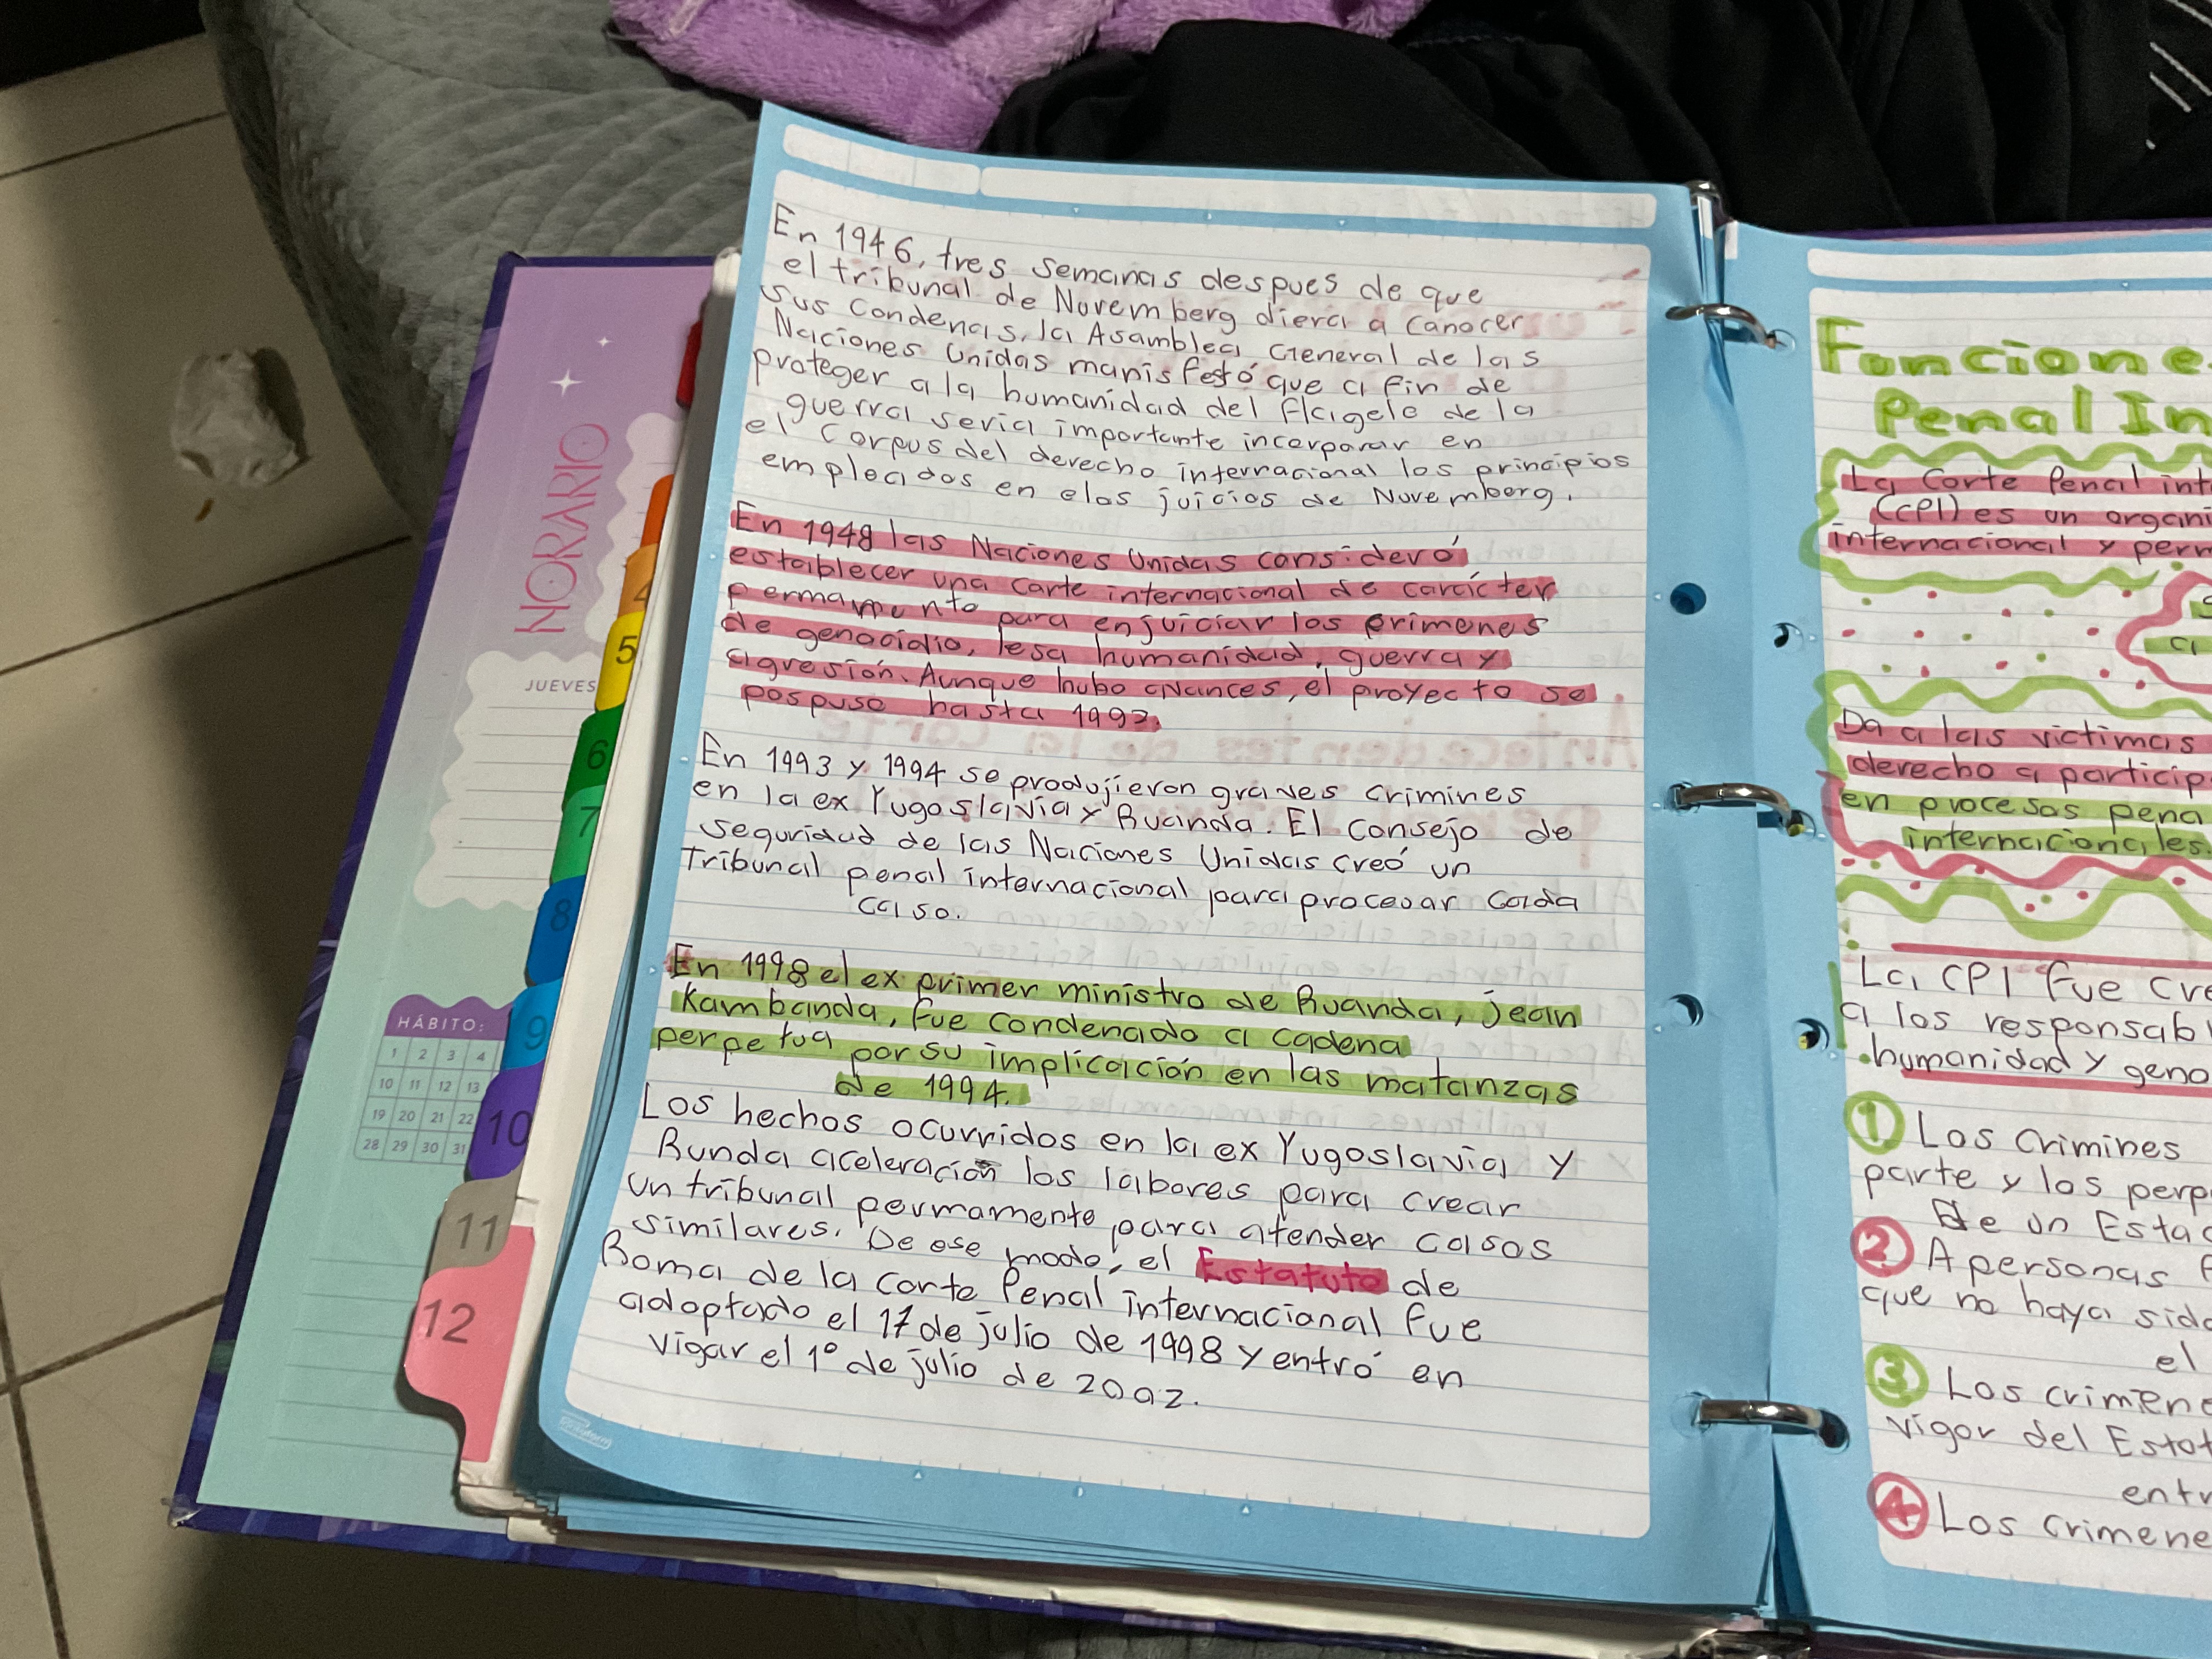 En 1946, tres semanas despues de que
el tribunal de Nuremberg diera a canocer
sus condenas, la Asamblea General de las
Naciones Unidas manisfestó que a fin de
proteger a la humanidad del flagelo de la
guerra seria importante incorporar en
el Corpus del derecho internacional los principios
empleados en elos juicios de Nuremberg.
En 1948 las Naciones Unidas consideró
establecer una Carte internacional de carácter
permamente para enjuiciar los crimenes
de genocidio, lesa humanidad, guerra y
agresión. Aunque hubo avances, el proyecto se
pospuso hasta 1992.
En 1993 y 1994 se produjieron graves crimines
en la ex Yugoslavia y Ruanda. El Consejo de
seguridad de las Naciones Unidas creó un
Tribunal penal internacional para procesar cada
caso.
En 1998 el ex primer ministro de Ruanda, jean
Kambanda, fue condenado a cadena
perpetua por su implicación en las matanzas
de 1994.
Los hechos ocurridos en la ex Yugoslavia y
Runda aceleración los labores para crear
un tribunal permamente para atender casos
similares. De ese modo, el Estatuto de
Roma de la Corte Penal internacional fue
adoptado el 17 de julio de 1998 y entró en
vigar el 1° de julio de 2002.
HORARIO
JUEVES
HÁBITO:
1 2 3 4
10 11 12 13
19 20 21 22
28 29 30 31
4
5
6
7
8
9
10
11
12
Funcione
Penal In
La Corte Penal int
(CPI) es un organi
internacional y perm
Da a las victimas
derecho a particip
en procesos pena
internacionales.
La CPI fue cre
a los responsab
humanidad y geno
1. Los Crimines
parte y los perp
de un Estad
2. A personas
que no haya sido
el
3. Los crimene
vigor del Estat
entr
4 Los crimene